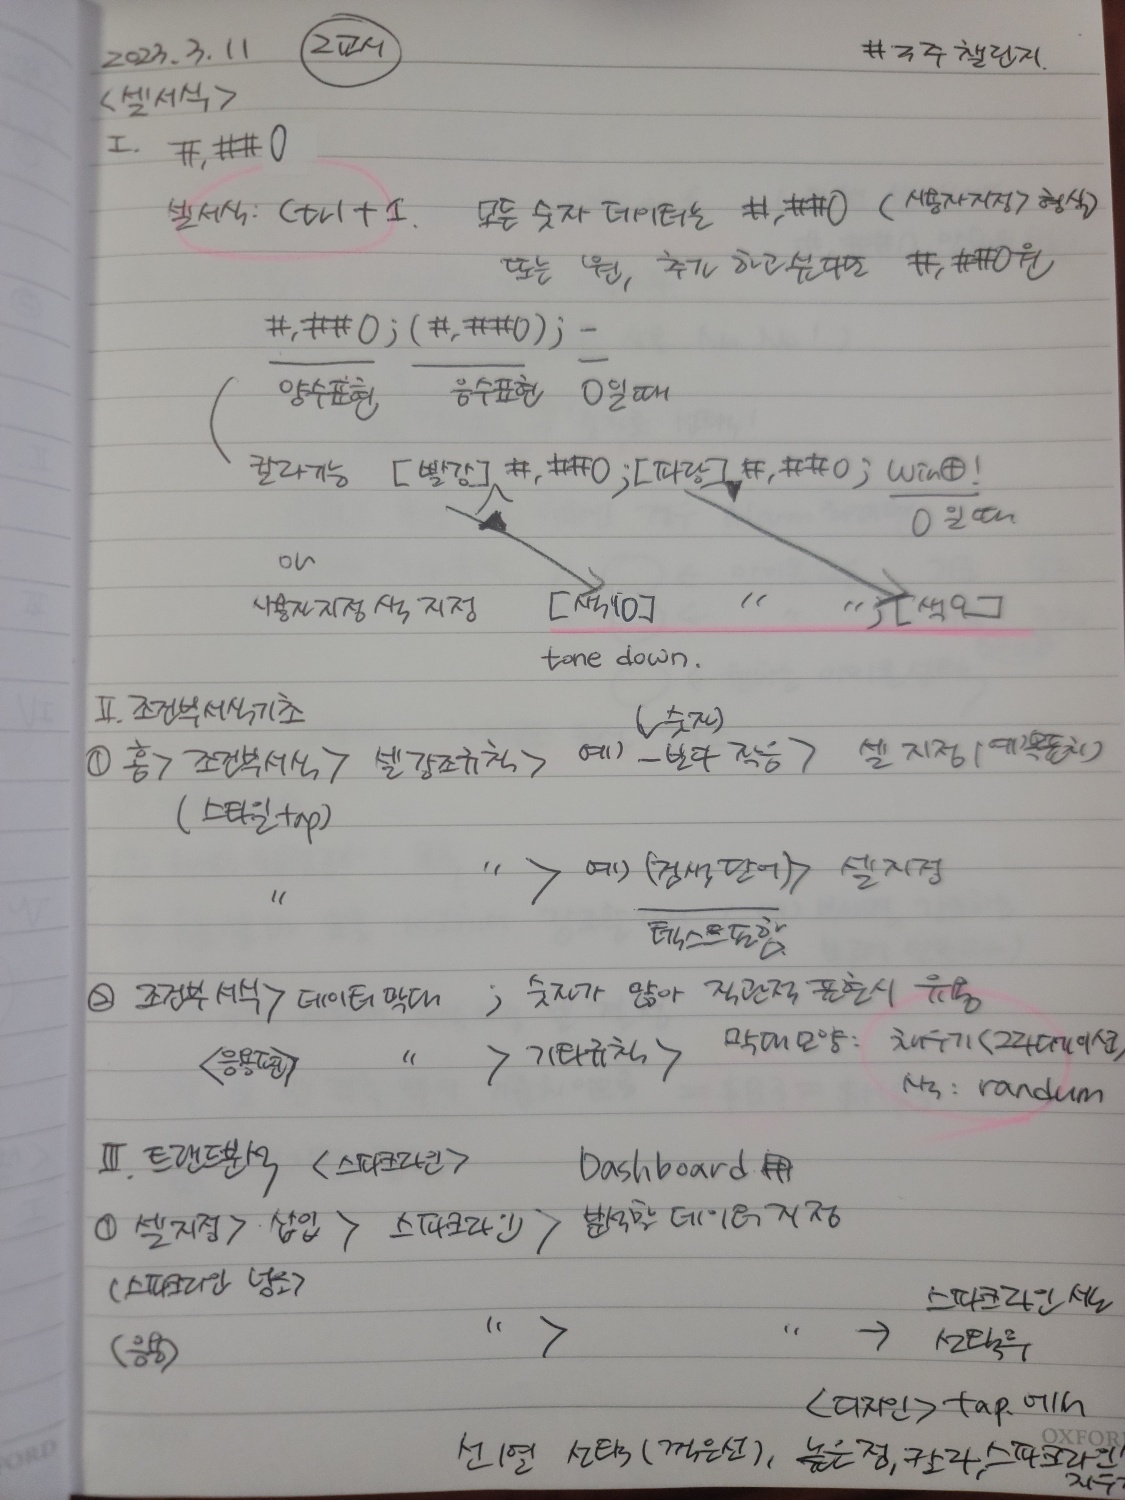 2023. 3. 11 2교시 #3주 챌린지.
<셀서식>
I. #,##0
셀서식: Ctrl + 1. 모든 숫자 데이터는 #,##0 (사용자지정> 형식)
또는 '원, 추가 하고싶다면 #,##0원
#,##0; (#,##0); -
양수표현 음수표현 0일때
칼라기능 [빨강] #,##0; [파랑] #,##0; win⊕!
0일때
or
사용자지정 색 지정 [색10] " "; [색9]
tone down.
II. 조건부서식기초
(숫자)
① 홈> 조건부서식> 셀강조규칙> 예) -보다 작음> 셀 지정
(스타일tap)
" " > 예) (검색단어)> 셀지정
텍스트포함
② 조건부 서식> 데이터막대 ; 숫자가 많아 직관적 표현시 유용
<응용편> " > 기타규칙> 막대모양: 채우기<그라데이션
색: randum
III. 트랜드분석 <스파크라인> Dashboard 用
① 셀지정> 삽입 > 스파크라인> 분석할 데이터 지정
(스파크라인 넣기>
스파크라인 셀
(응용) " > " → 선택후
<디자인> tap. 에서
OXFORD
선1열 선택(꺾은선), 높은점, 칼라, 스파크라인